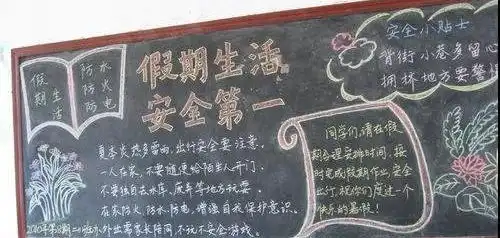 假期生活
防水
防火
防电
假期生活
安全第一
夏季炎热多雷雨,出行安全要注意。
一人在家,不要随便给陌生人开门。
不要独自去水库、废弃等地方玩耍。
在家防火、防水、防电,增强自我保护意识。
外出需家长陪同,不玩不安全游戏。
同学们,请在假
期合理安排时间,按
时完成假期作业,安全
出行,祝你们度过一个
快乐的暑假!
安全小贴士
背街小巷多留心
拥挤地方要警